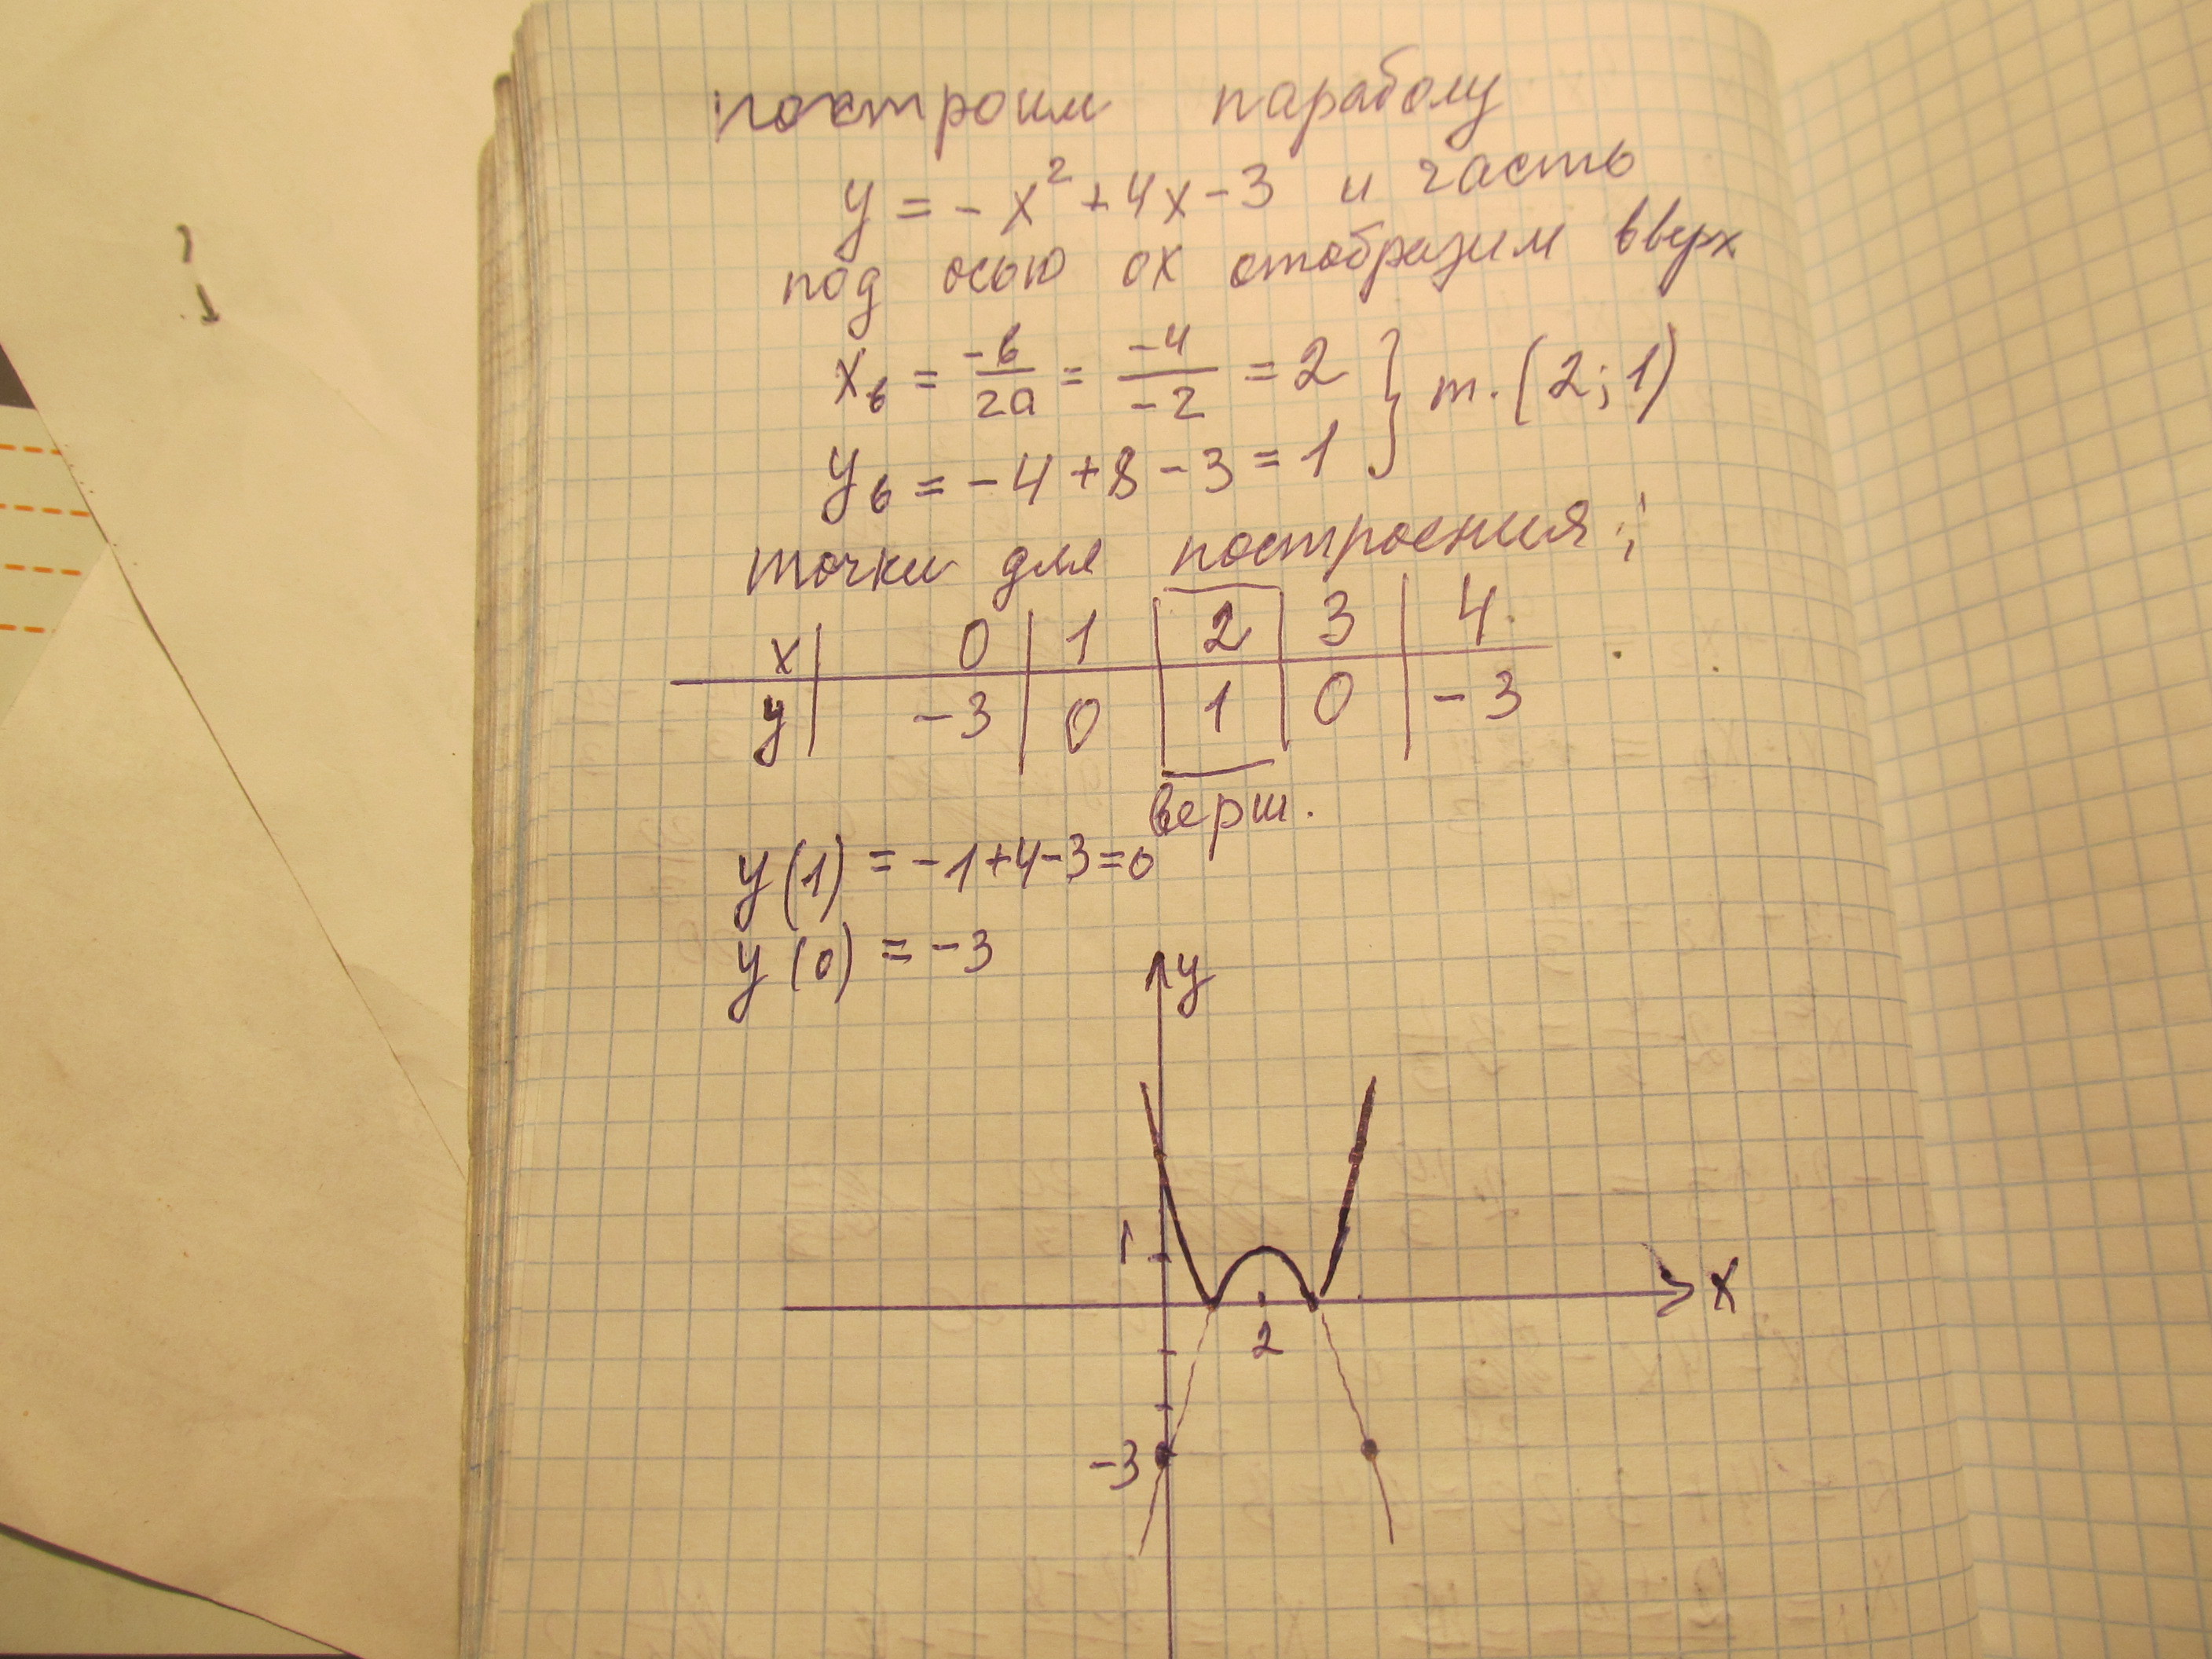 построим параболу
y = -x² + 4x - 3 и часть
под осью ох отобразим вверх
xв = -в/2а = -4/-2 = 2 } т. (2; 1)
yв = -4 + 8 - 3 = 1
точки для построения:
x | 0 | 1 | 2 | 3 | 4
y | -3 | 0 | 1 | 0 | -3
верш.
y(1) = -1+4-3=0
y(0) = -3
y
1
x
2
-3